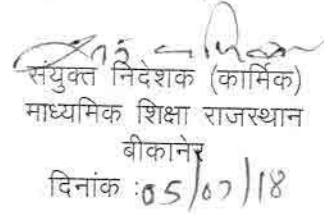 संयुक्त निदेशक (कार्मिक)
माध्यमिक शिक्षा राजस्थान
बीकानेर
दिनांक :05/07/18